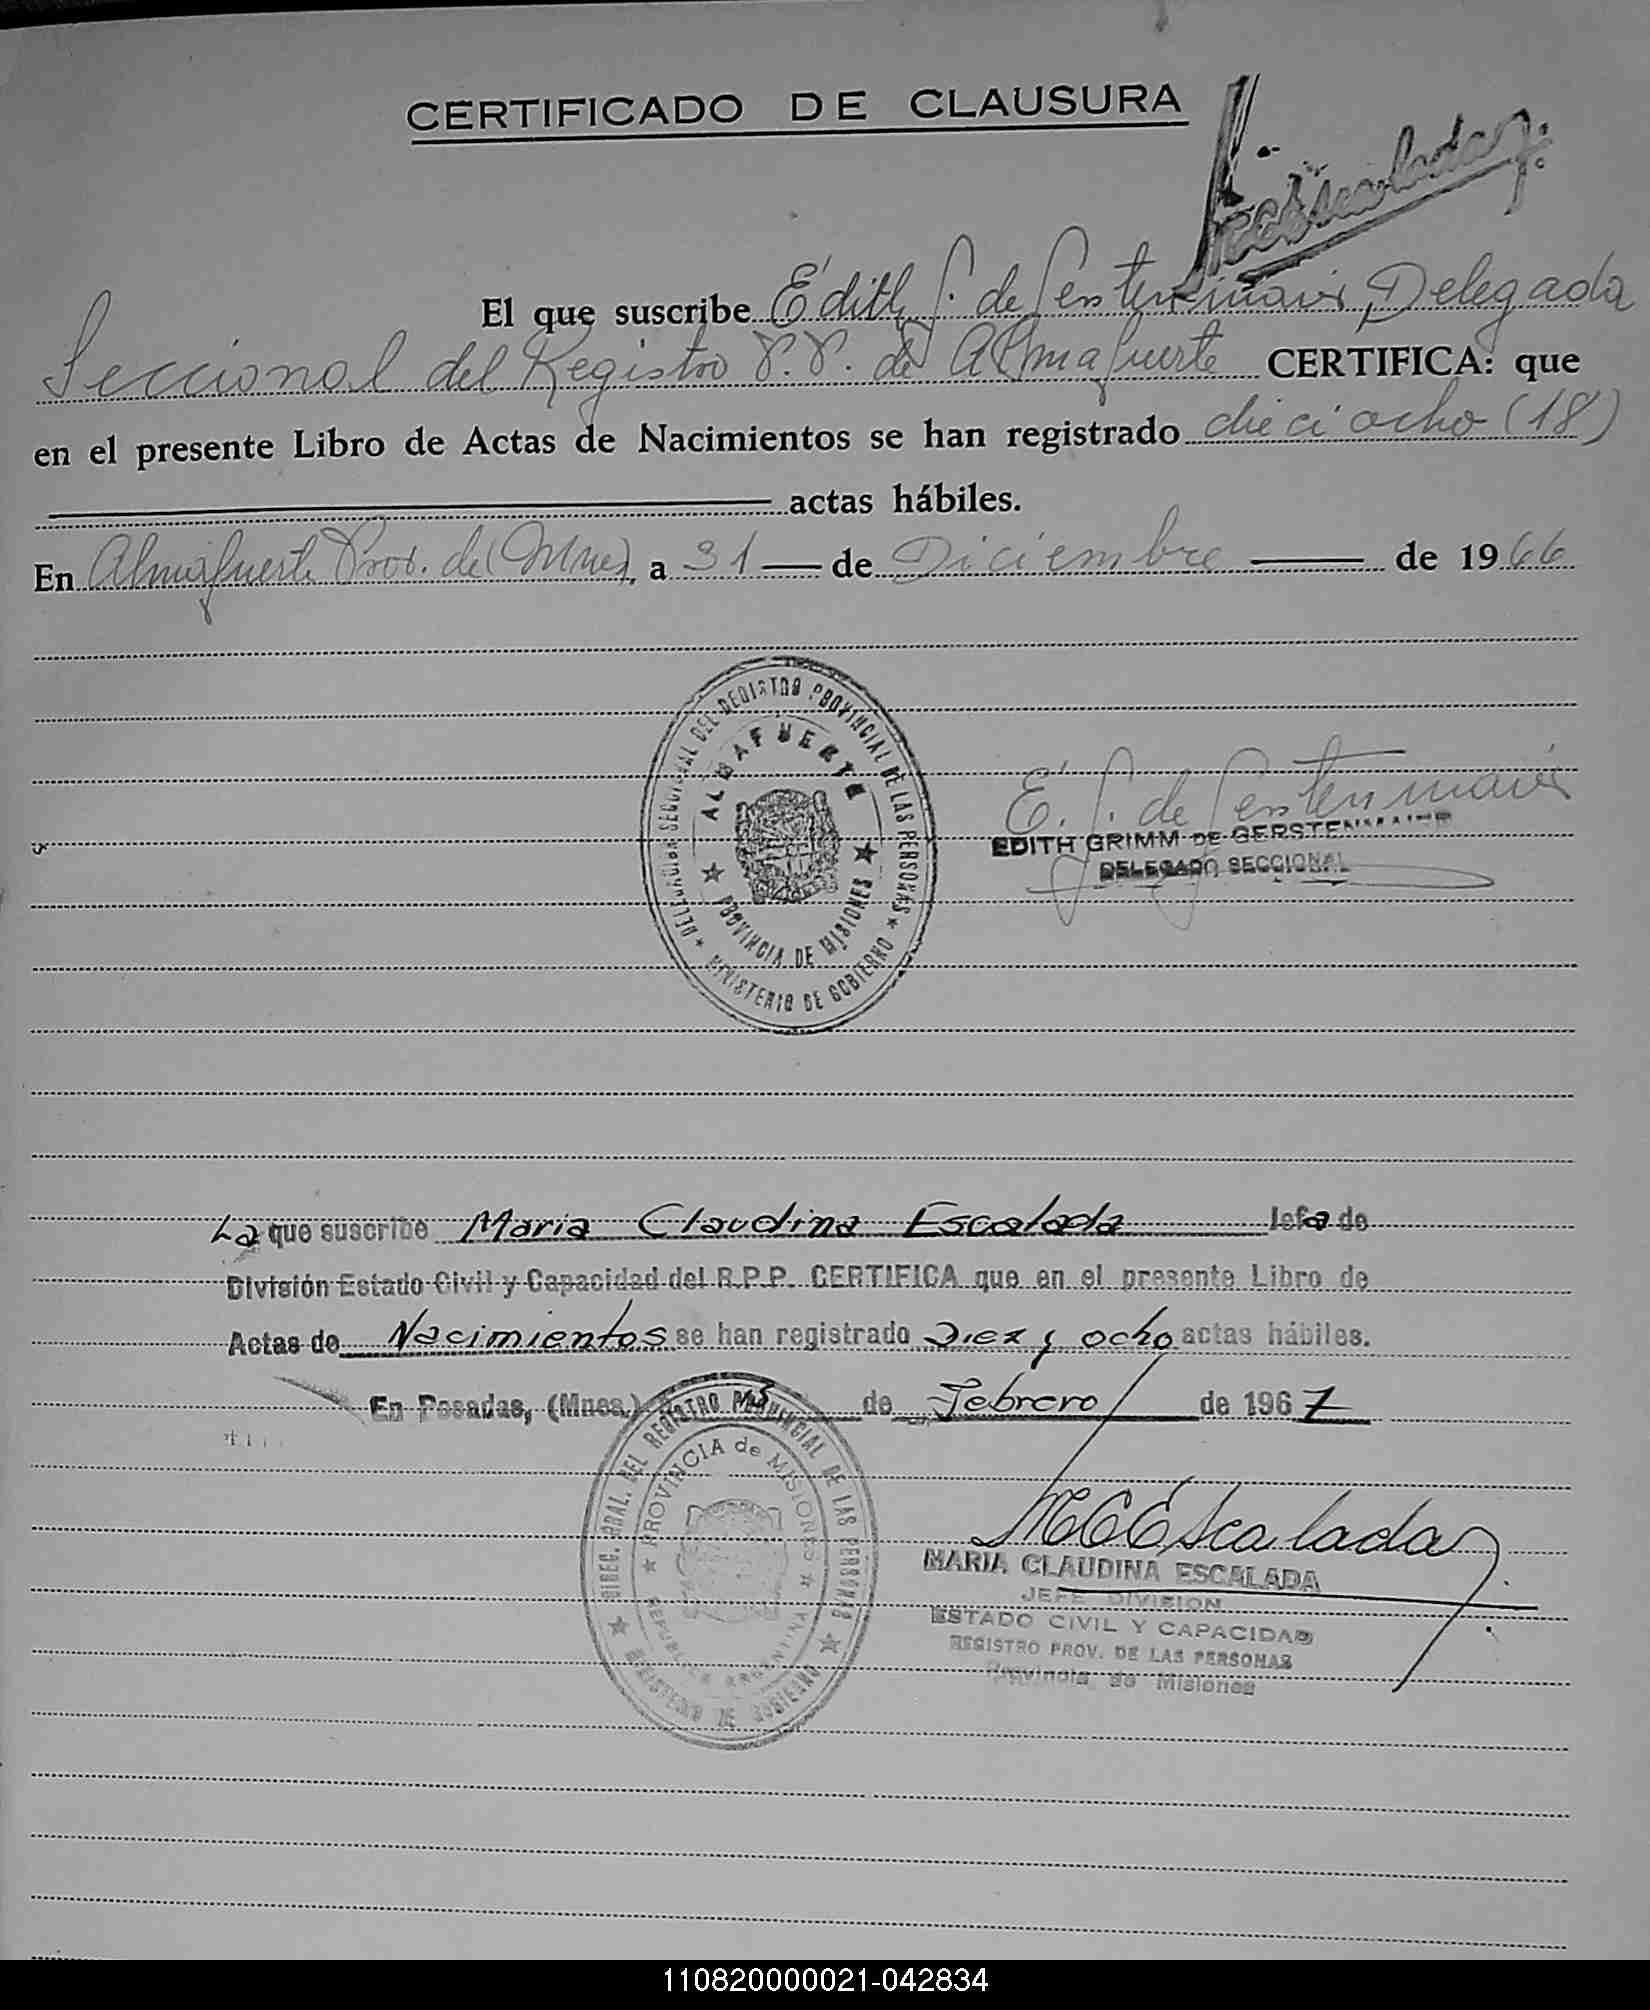 CERTIFICADO DE CLAUSURA
MCCEscalada
El que suscribe Edith G. de Gerstenmaier, Delegada
Seccional del Registro P.P. de Almafuerte CERTIFICA: que
en el presente Libro de Actas de Nacimientos se han registrado dieciocho (18)
actas hábiles.
En Almafuerte Prov. de (Mnes), a 31 de Diciembre de 1966
DELEGACION SECCIONAL DEL REGISTRO PROVINCIAL DE LAS PERSONAS
★ MINISTERIO DE GOBIERNO ★
ALMAFUERTE
★ PROVINCIA DE MISIONES ★
E. G. de Gerstenmaier
EDITH GRIMM DE GERSTENMAIER
DELEGADO SECCIONAL
La que suscribe Maria Claudina Escalada Jefa de
División Estado Civil y Capacidad del R.P.P. CERTIFICA que en el presente Libro de
Actas de Nacimientos se han registrado Diez y ocho actas hábiles.
En Posadas, (Mnes.) de Febrero de 1967
DIREC. GRAL. DEL REGISTRO PROVINCIAL DE LAS PERSONAS
★ MINISTERIO DE GOBIERNO ★
★ PROVINCIA de MISIONES ★
REPUBLICA ARGENTINA
MCCEscalada
MARIA CLAUDINA ESCALADA
JEFE DIVISION
ESTADO CIVIL Y CAPACIDAD
REGISTRO PROV. DE LAS PERSONAS
Provincia de Misiones
110820000021-042834